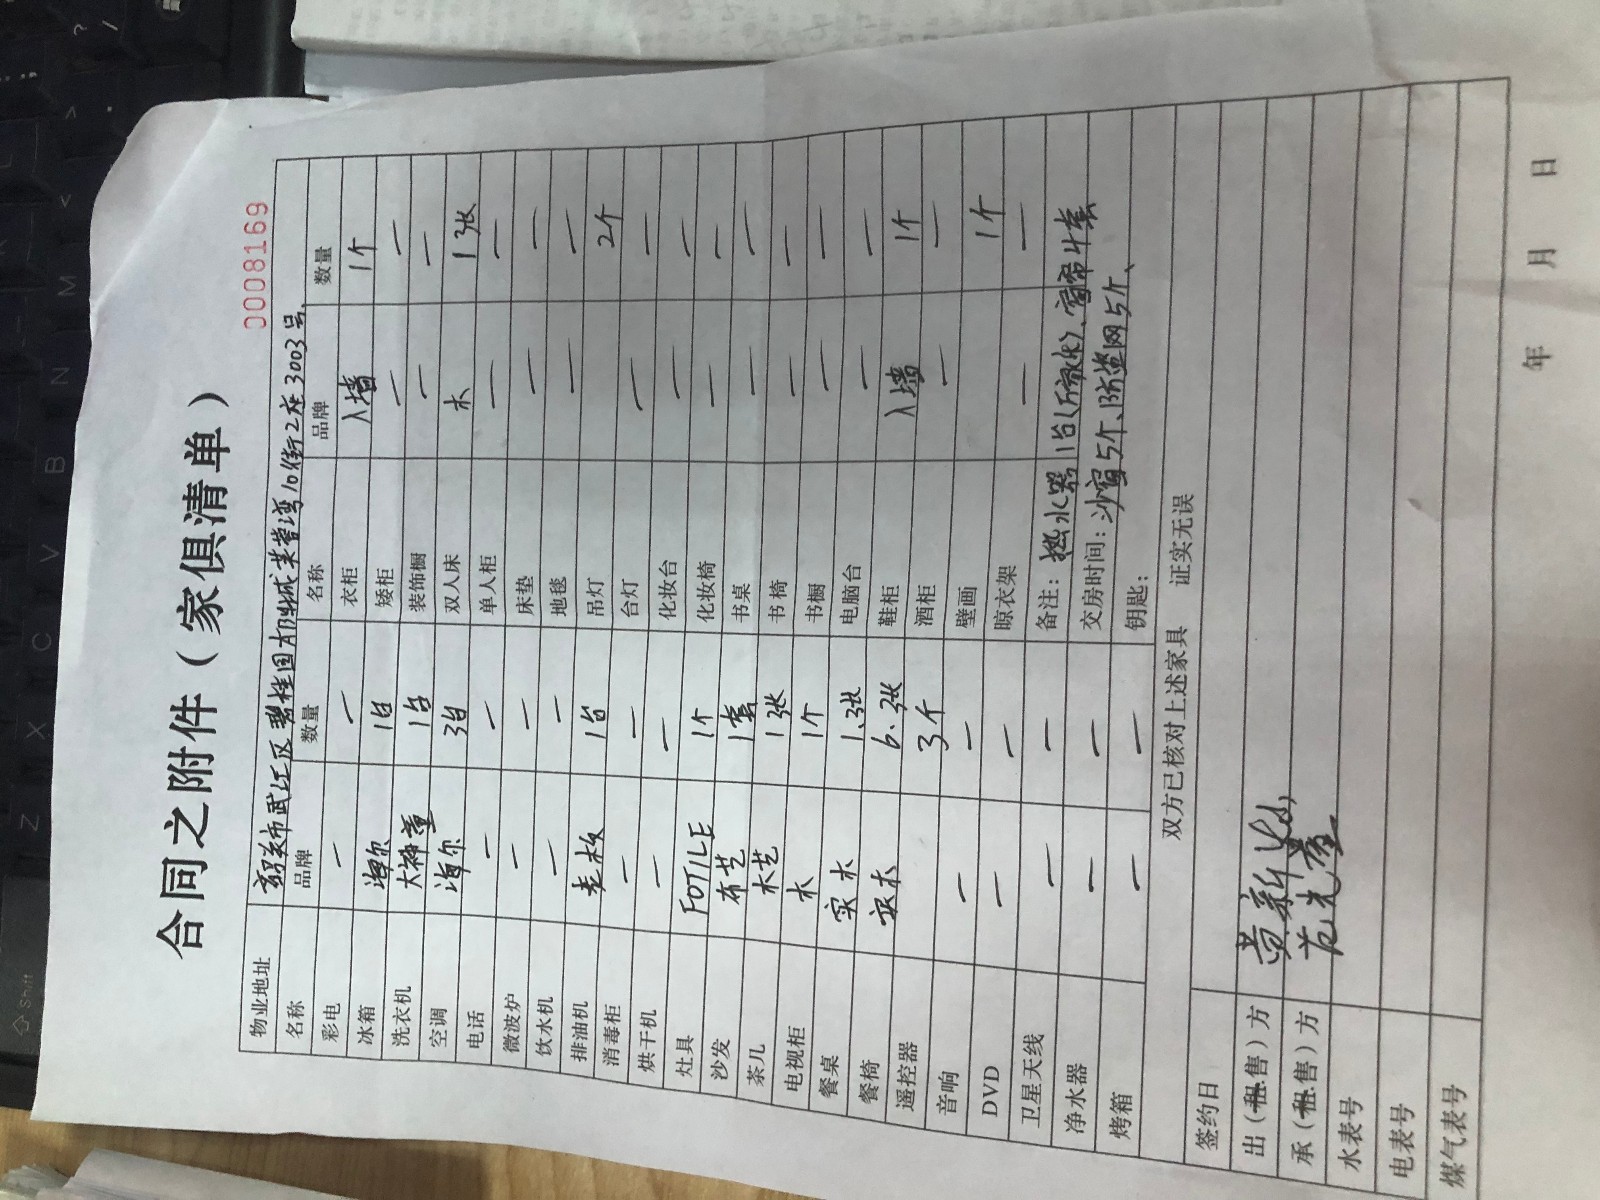 合同之附件（家俱清单）
0008169
物业地址 韶关市武江区碧桂园凤凰城芙蓉湾10街2座3003号
名称 品牌 数量 名称 品牌 数量
彩电 — — 衣柜 入墙 1个
冰箱 海尔 1台 矮柜 — —
洗衣机 大神童 1台 装饰橱 — —
空调 海尔 3台 双人床 木 1张
电话 — — 单人柜 — —
微波炉 — — 床垫 — —
饮水机 — — 地毯 — —
排油机 老板 1台 吊灯 2个
消毒柜 — — 台灯 — —
烘干机 — — 化妆台 — —
灶具 FOTILE 1个 化妆椅 — —
沙发 布艺 1套 书桌 — —
茶几 木艺 1张 书椅 — —
电视柜 木 1个 书橱 — —
餐桌 实木 1张 电脑台 — —
餐椅 实木 6张 鞋柜 入墙 1个
遥控器 3个 酒柜 — —
音响 — — 壁画 1个
DVD — — 晾衣架 — —
卫星天线 — — 备注：热水器1台(万家乐)、窗帘4套
净水器 — — 交房时间：沙窗5个、防盗网5个、
烤箱 — — 钥匙：
双方已核对上述家具 证实无误
签约日
出（租售）方 黄新
承（租售）方 范光
水表号
电表号
煤气表号
年 月 日